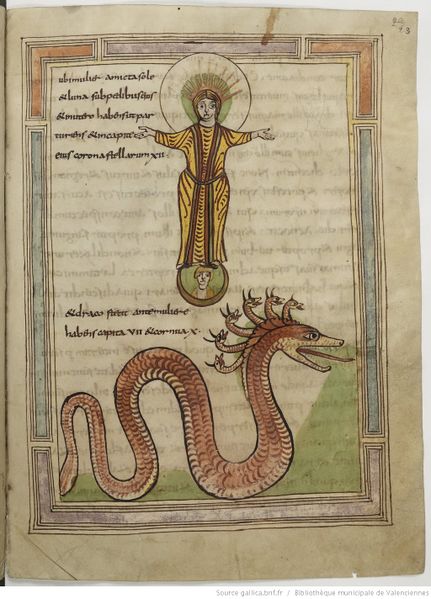 23
ubi mulier amicta sole
& luna sub pedibus eius
& in utero habens par
turiens & in capite
eius corona stellarum XII
& draco stetit ante muliere
habens capita VII & cornua X.
Source gallica.bnf.fr / Bibliothèque municipale de Valenciennes